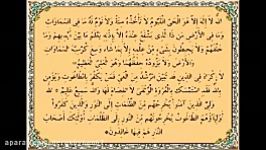 اللَّهُ لَا إِلَهَ إِلَّا هُوَ الْحَيُّ الْقَيُّومُ لَا تَأْخُذُهُ سِنَةٌ وَلَا نَوْمٌ لَهُ مَا فِي السَّمَاوَاتِ
وَمَا فِي الْأَرْضِ مَنْ ذَا الَّذِي يَشْفَعُ عِنْدَهُ إِلَّا بِإِذْنِهِ يَعْلَمُ مَا بَيْنَ أَيْدِيهِمْ وَمَا
خَلْفَهُمْ وَلَا يُحِيطُونَ بِشَيْءٍ مِنْ عِلْمِهِ إِلَّا بِمَا شَاءَ وَسِعَ كُرْسِيُّهُ السَّمَاوَاتِ
وَالْأَرْضَ وَلَا يَئُودُهُ حِفْظُهُمَا وَهُوَ الْعَلِيُّ الْعَظِيمُ
لَا إِكْرَاهَ فِي الدِّينِ قَدْ تَبَيَّنَ الرُّشْدُ مِنَ الْغَيِّ فَمَنْ يَكْفُرْ بِالطَّاغُوتِ وَيُؤْمِنْ
بِاللَّهِ فَقَدِ اسْتَمْسَكَ بِالْعُرْوَةِ الْوُثْقَى لَا انْفِصَامَ لَهَا وَاللَّهُ سَمِيعٌ عَلِيمٌ اللَّهُ
وَلِيُّ الَّذِينَ آمَنُوا يُخْرِجُهُمْ مِنَ الظُّلُمَاتِ إِلَى النُّورِ وَالَّذِينَ كَفَرُوا
أَوْلِيَاؤُهُمُ الطَّاغُوتُ يُخْرِجُونَهُمْ مِنَ النُّورِ إِلَى الظُّلُمَاتِ أُولَئِكَ أَصْحَابُ
النَّارِ هُمْ فِيهَا خَالِدُونَ